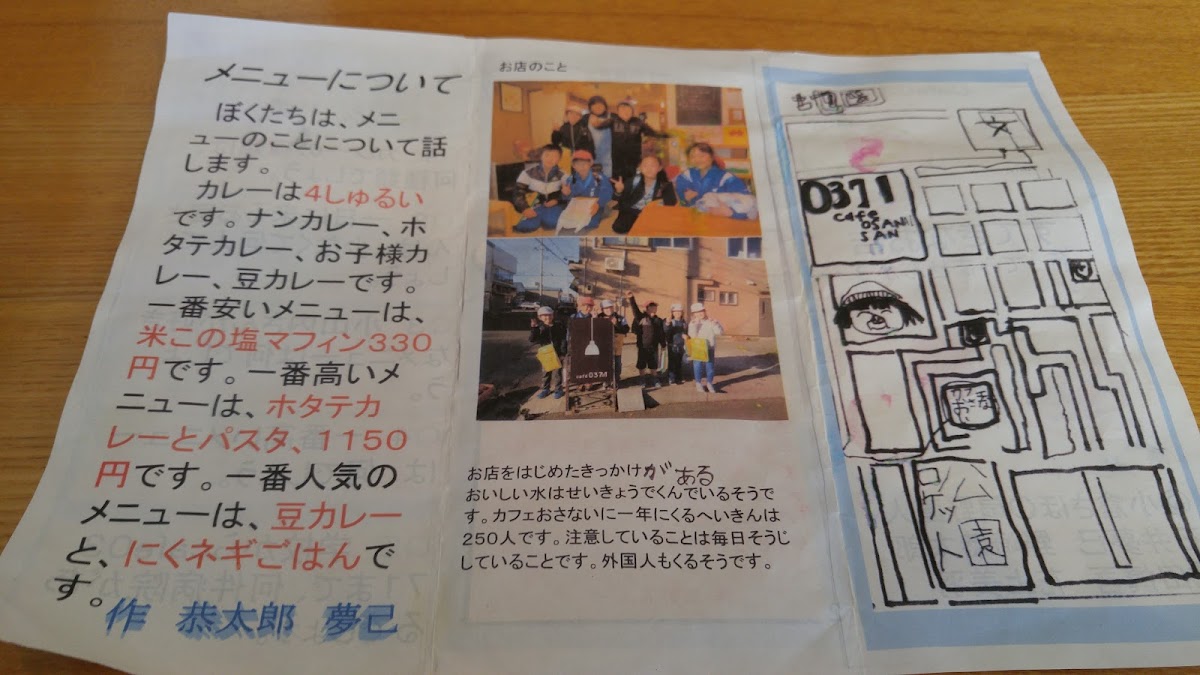 メニューについて
ぼくたちは、メニ
ューのことについて話
します。
カレーは4しゅるい
です。ナンカレー、ホ
タテカレー、お子様カ
レー、豆カレーです。
一番安いメニューは、
米この塩マフィン330
円です。一番高いメ
ニューは、ホタテカ
レーとパスタ、1150
円です。一番人気の
メニューは、豆カレー
と、にくネギごはんで
す。
作 恭太郎 夢己
お店のこと
cafe 0371
お店をはじめたきっかけがある
おいしい水はせいきょうでくんでいるそうで
す。カフェおさないに一年にくるへいきんは
250人です。注意していることは毎日そうじ
していることです。外国人もくるそうです。
文
0371
cafe
OSANII
SAN
ロケット
公園